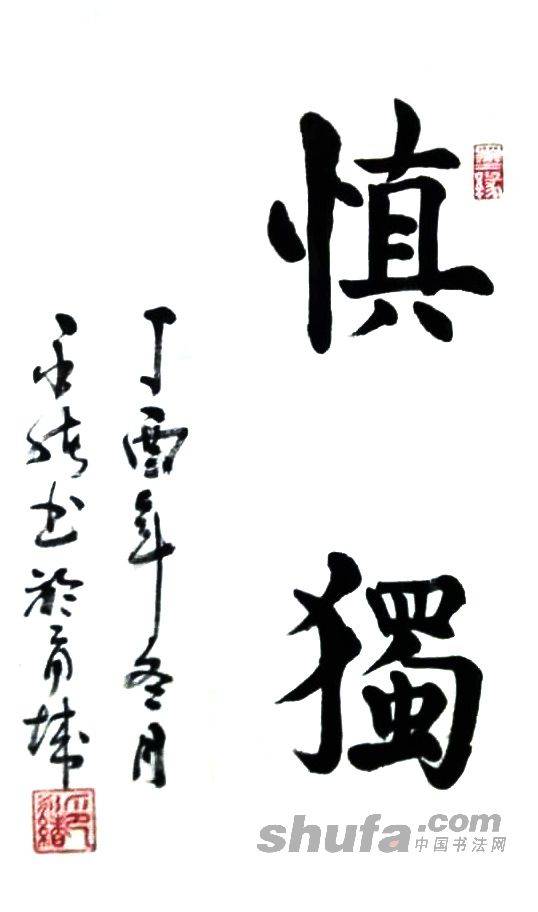 慎獨
丁酉年冬月
书於
shufa.com
中国书法网